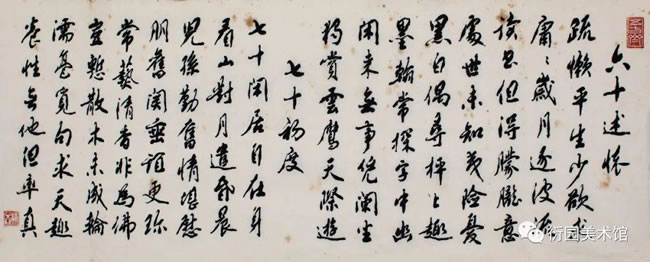 六十述懷
疏懶平生少欲求
庸々歲月逐波流
但得朦朧意
處世未知險憂
黑白偶尋枰上趣
墨翰常探字中幽
閑來無事凭闌坐
獨賞雲鷹天際遊
七十初度
七十閑居自在身
看山對月遣昏晨
兒孫勤奮情堪慰
朋舊關垂誼更珍
常藝清香非為佛
豈慙散木未成輪
濡毫覓句求天趣
養性無他但率真
衍园美术馆